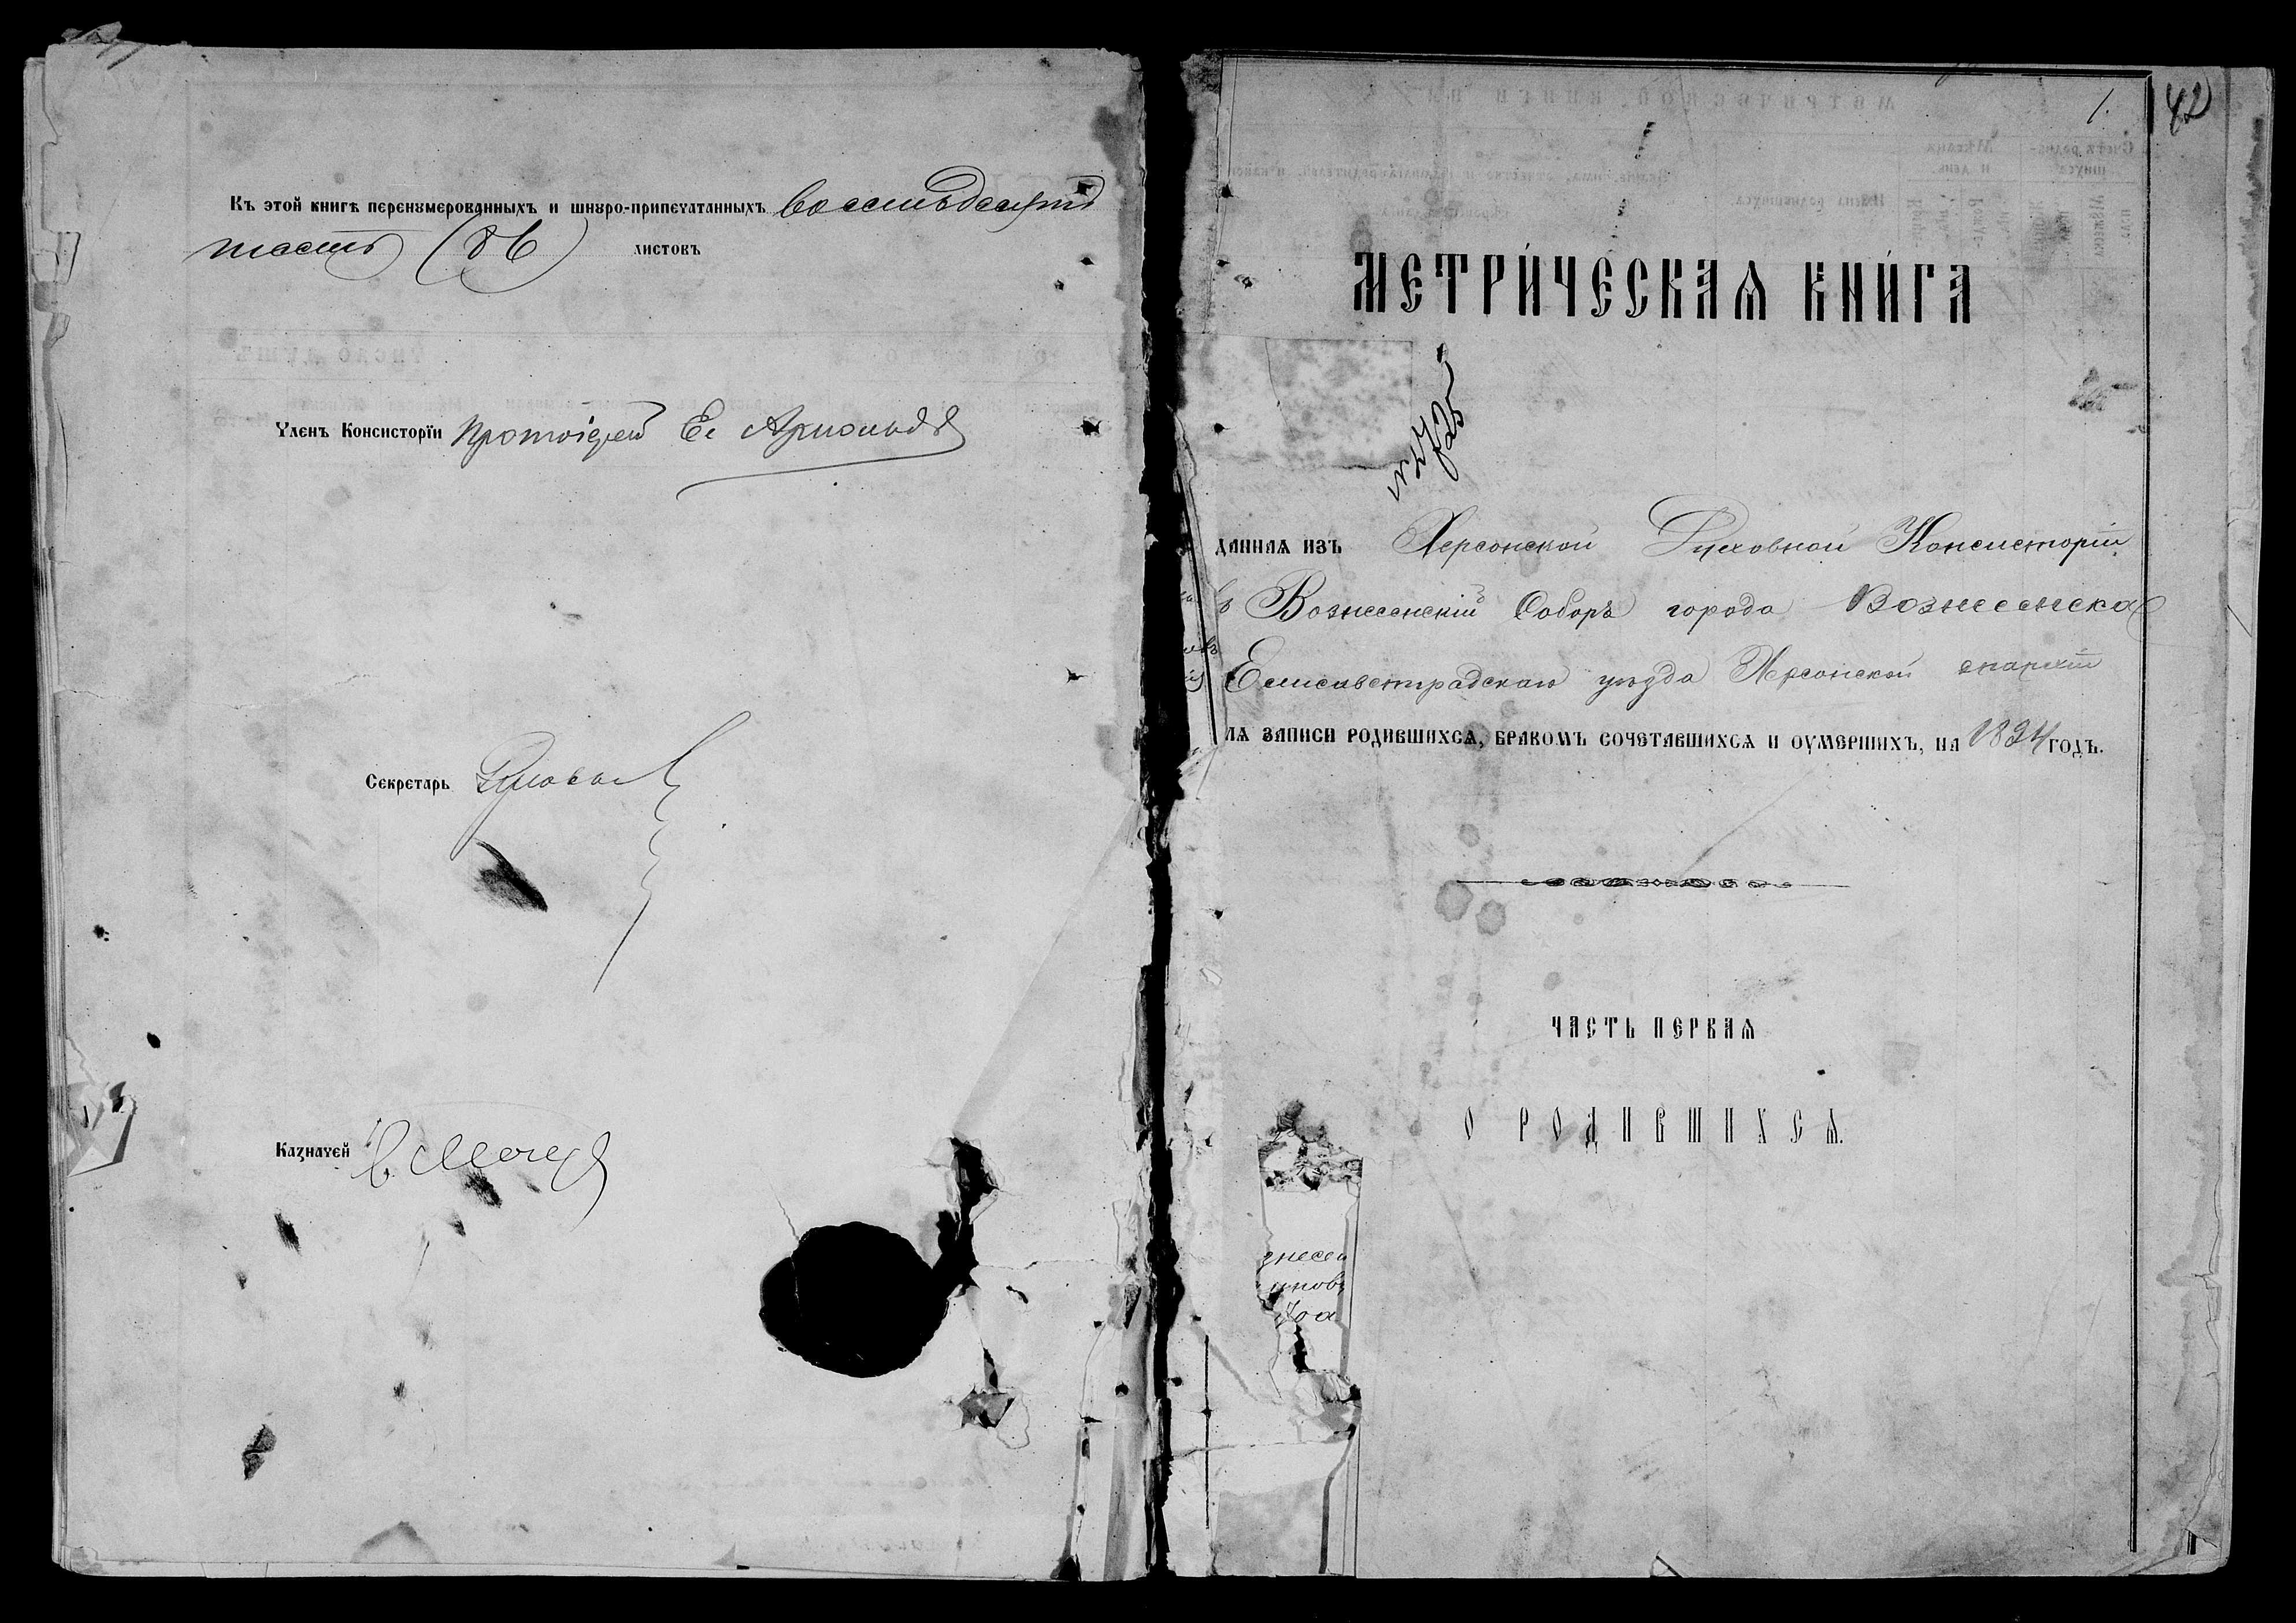 Къ этой книгѣ перенумерованныхъ и шнуро-припечатанныхъ восемьдесятъ
шесть (86) листовъ
Членъ Консисторїи Протоіерей
Секретарь
Казначей
1.
42
МЕТРИ́ЧЕСКАѦ КНИ́ГА
даннаѧ изъ Херсонской Духовной Консисторіи
в Вознесенскій Соборъ города Вознесенска
Елисаветградскаго уѣзда Херсонской епархіи
лѧ записи родившихсѧ, бракомъ сочетавшихсѧ и оумершихъ, на 1894 годъ.
ЧАСТЬ ПЕРВАѦ
О РОДИВШИХСѦ.
знесен